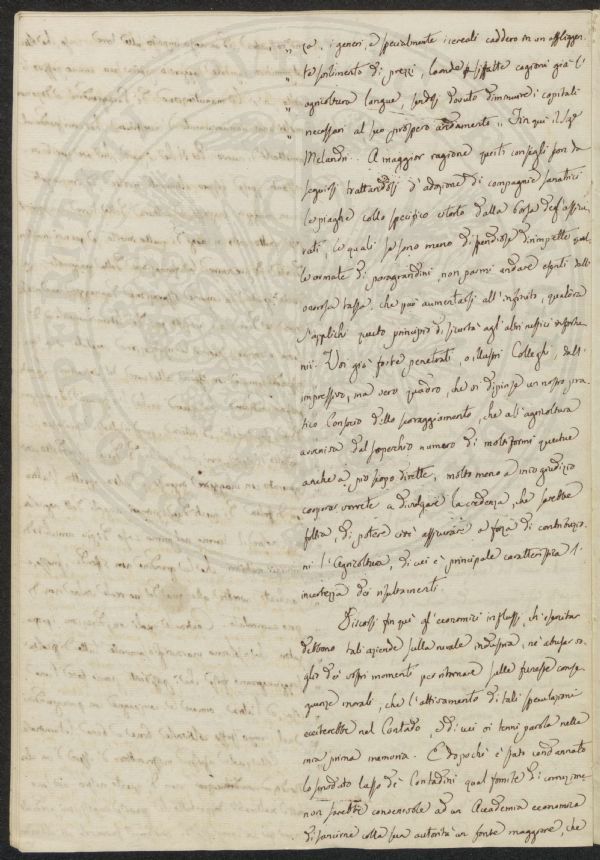 " za, i generi, e specialmente i cereali caddero in un affliggen-
" te svilimento di prezzi, laonde p siffatte cagioni già l'
" agricoltura langue, sendosi dovuto diminuire i capitali
necessari al suo prospero andamento „ Fin qui il Sig.e
Melandri. A maggior ragione questi consigli son da
seguirsi trattandosi d'adozione di compagnie sanatrici
le piaghe collo specifico estorto dalla borsa degl'assicu-
rati, le quali se sono meno dispendiose dirimpetto
le armate di paragrandini, non parmi andare esenti dall'
onerosa tassa, che può aumentarsi all'infinito, qualora
s'applichi questo principio di sicurtà agl'altri rustici infortu-
nii. Voi già foste penetrati, o illustri Colleghi, dall'
impressivo, ma vero quadro, che vi dipinse un nostro pra-
tico Consocio dello scoraggiamento, che all'agricoltura
avveniva dal soperchio numero di moltiformi
anche a più scopo dirette, molto meno a mio giudizio
vorrete a divulgare la credenza, che sarebbe
follia, di potere cioè assicurare a forza di contribuzio-
ni l'Agricoltura, di cui è principale caratteristica l'
incertezza dei risultamenti.
Discossi fin quì gl'economici influssi, ch'esercitar
debbono tali aziende sulla rurale industria, nè abusar vo-
glio dei vostri momenti per ritornare sulle funeste conse-
guenze morali, che l'attivamento di tali speculazioni
ecciterebbe nel Contado, e di cui vi tenni parola nella
mia prima memoria. E dopochè è stato condannato
lo smodato lusso de' Contadini qual fomite di corruzione
non sarebbe convenevole ad un Accademia economica
di sancirne colla sua autorità un fonte maggiore, che